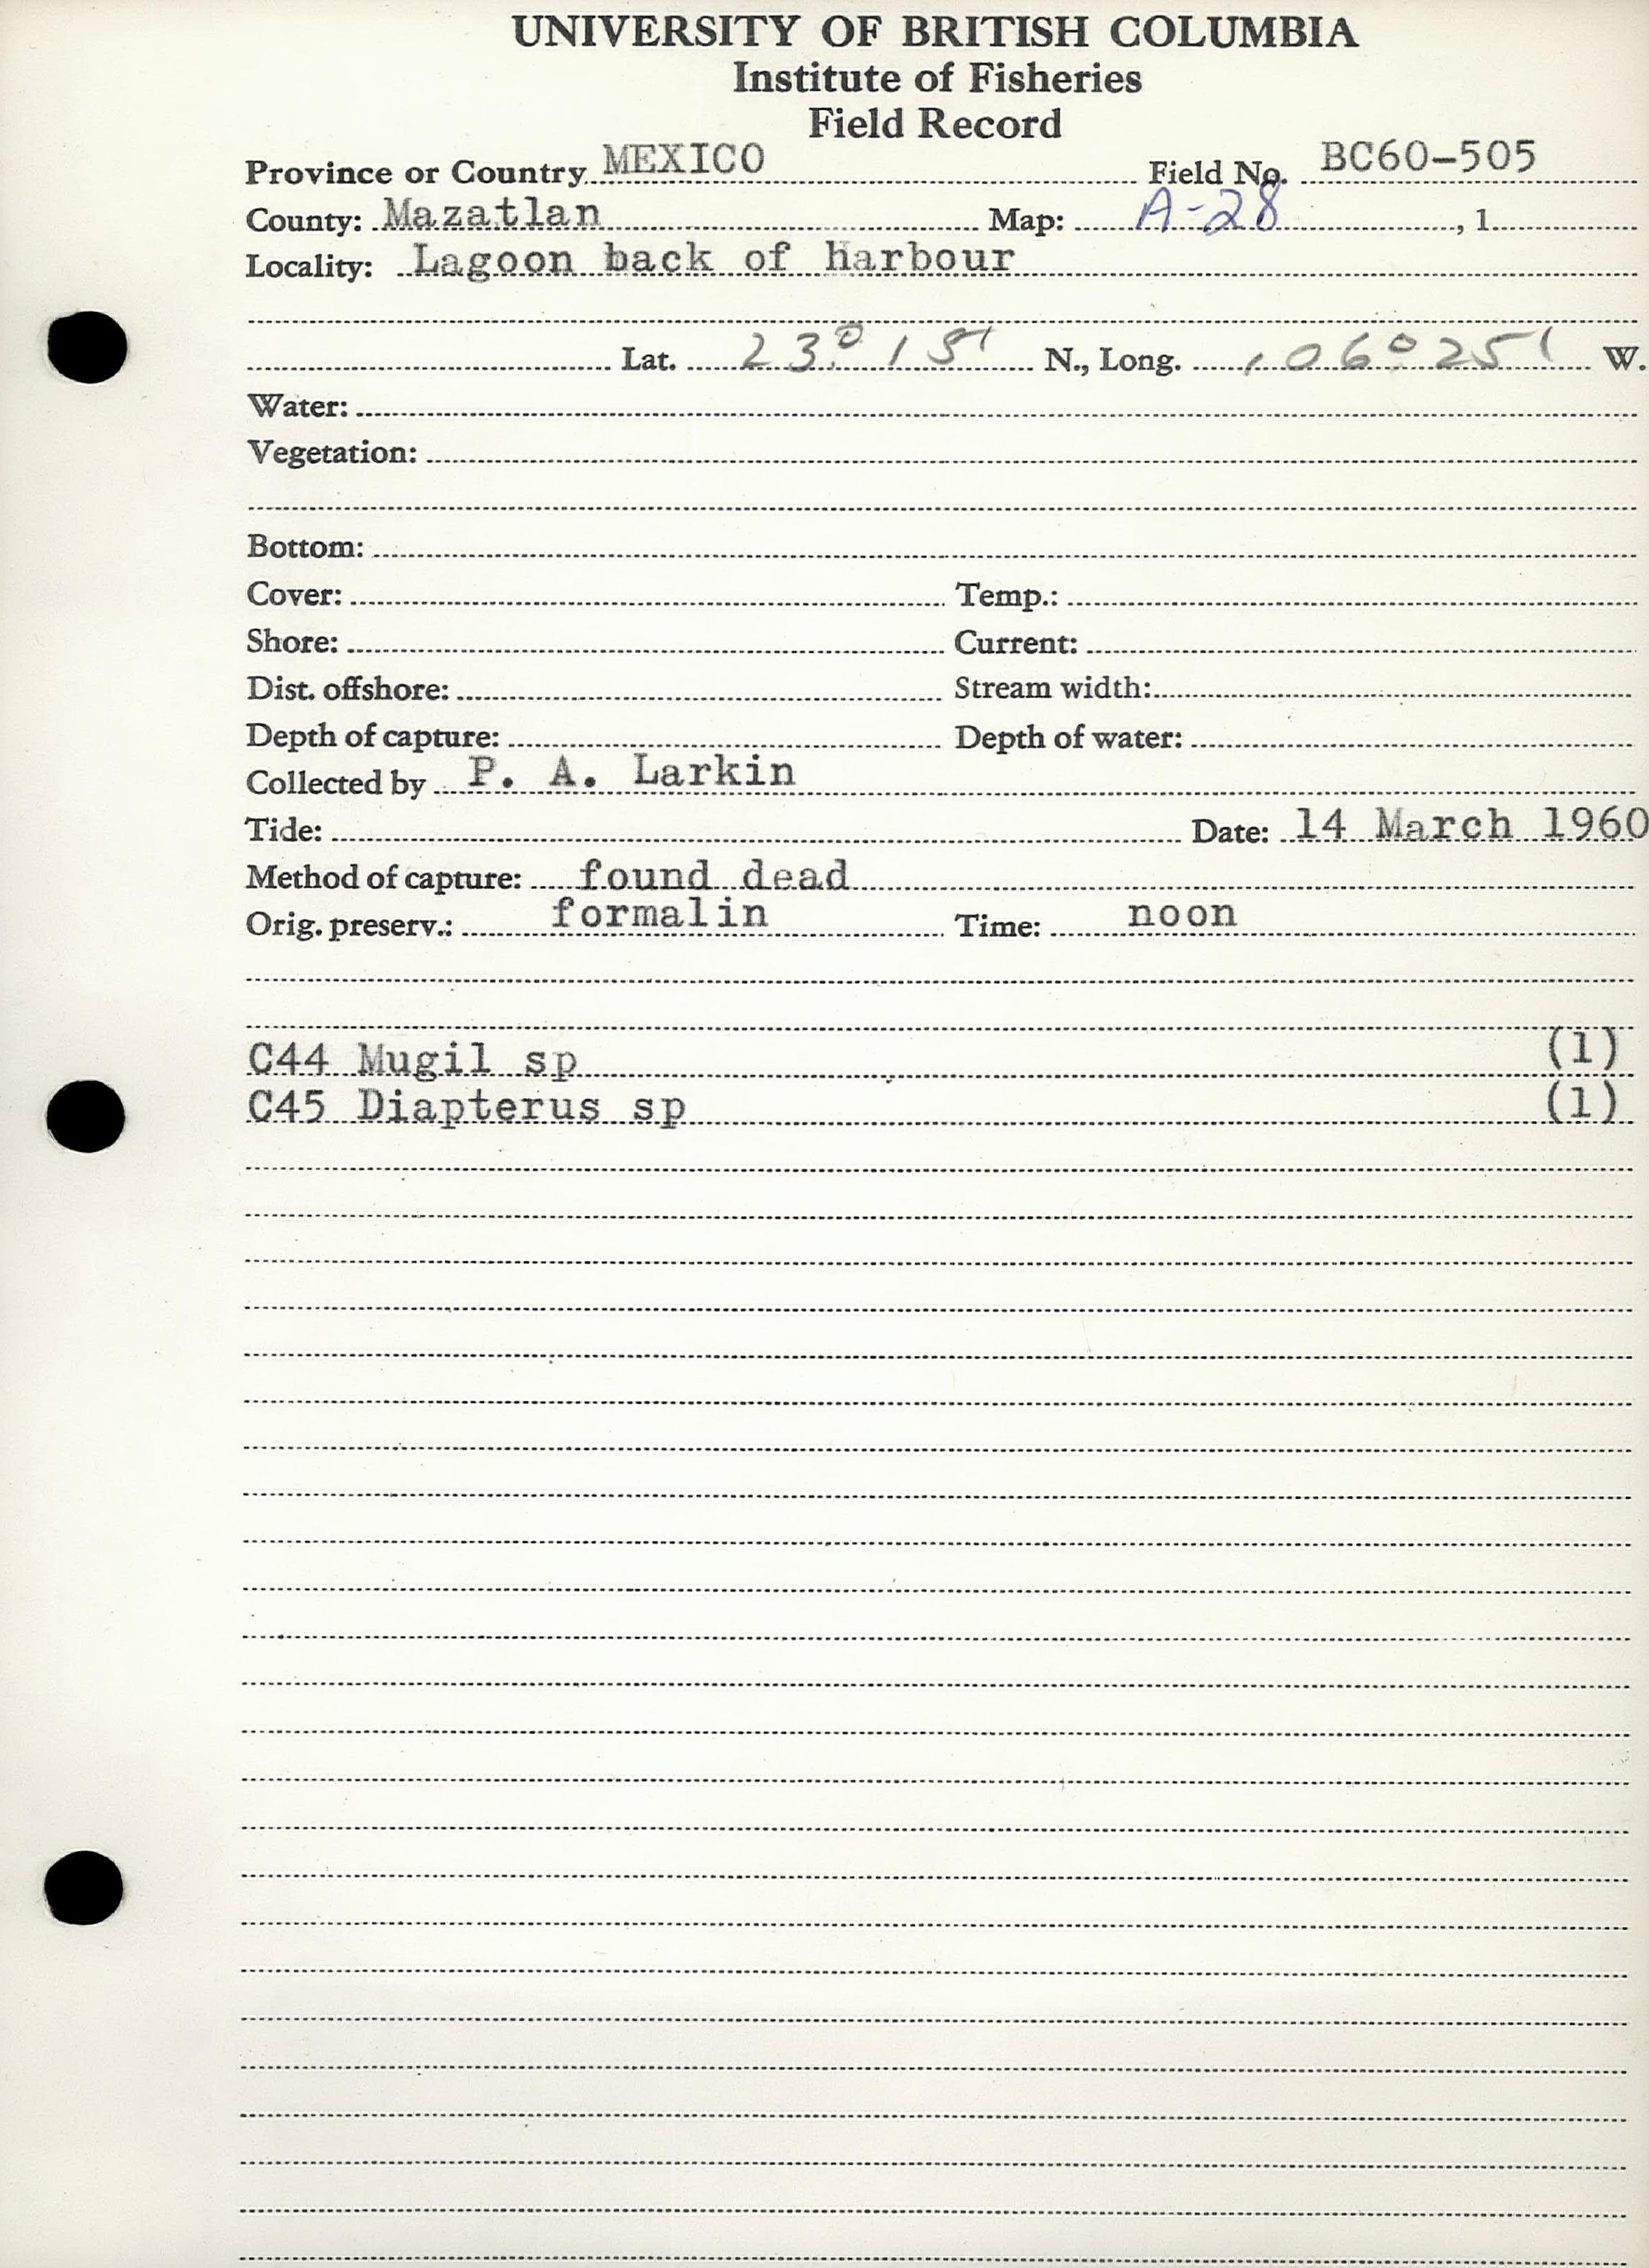 UNIVERSITY OF BRITISH COLUMBIA
Institute of Fisheries
Field Record
Province or Country MEXICO Field No. BC60-505
County: Mazatlan Map: A-28 , 1
Locality: Lagoon back of Harbour
Lat. 23° 15' N., Long. 106° 25' W.
Water:
Vegetation:
Bottom:
Cover: Temp.:
Shore: Current:
Dist. offshore: Stream width:
Depth of capture: Depth of water:
Collected by P. A. Larkin
Tide: Date: 14 March 1960
Method of capture: found dead
Orig. preserv.: formalin Time: noon
C44 Mugil sp (1)
C45 Diapterus sp (1)